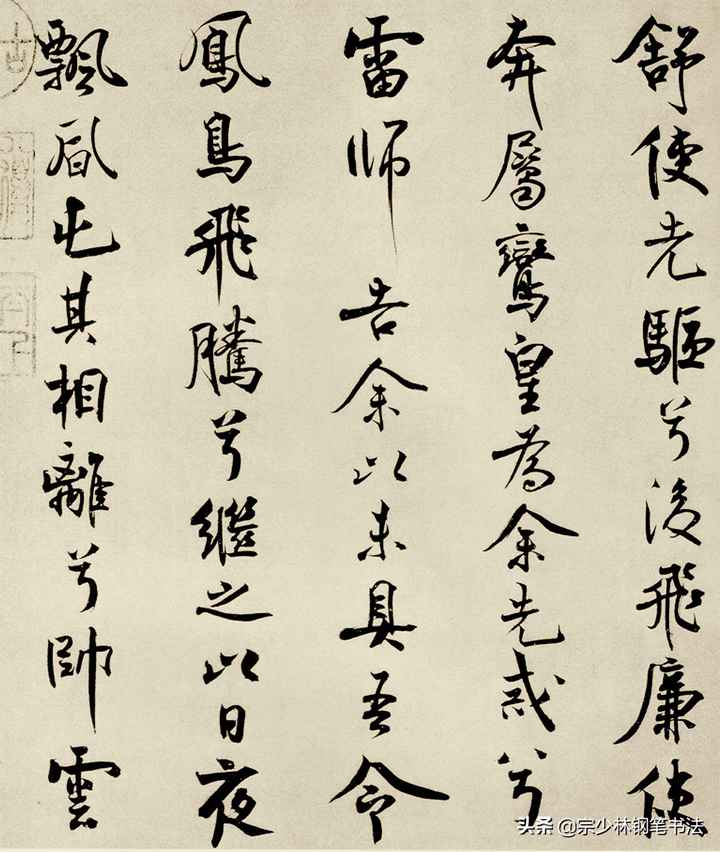 舒使先驅兮後飛廉使
奔屬鸞皇為余先戒兮
雷師告余以未具吾令
鳳鳥飛騰兮繼之以日夜
飄風屯其相離兮帥雲
头条 @宗少林钢笔书法